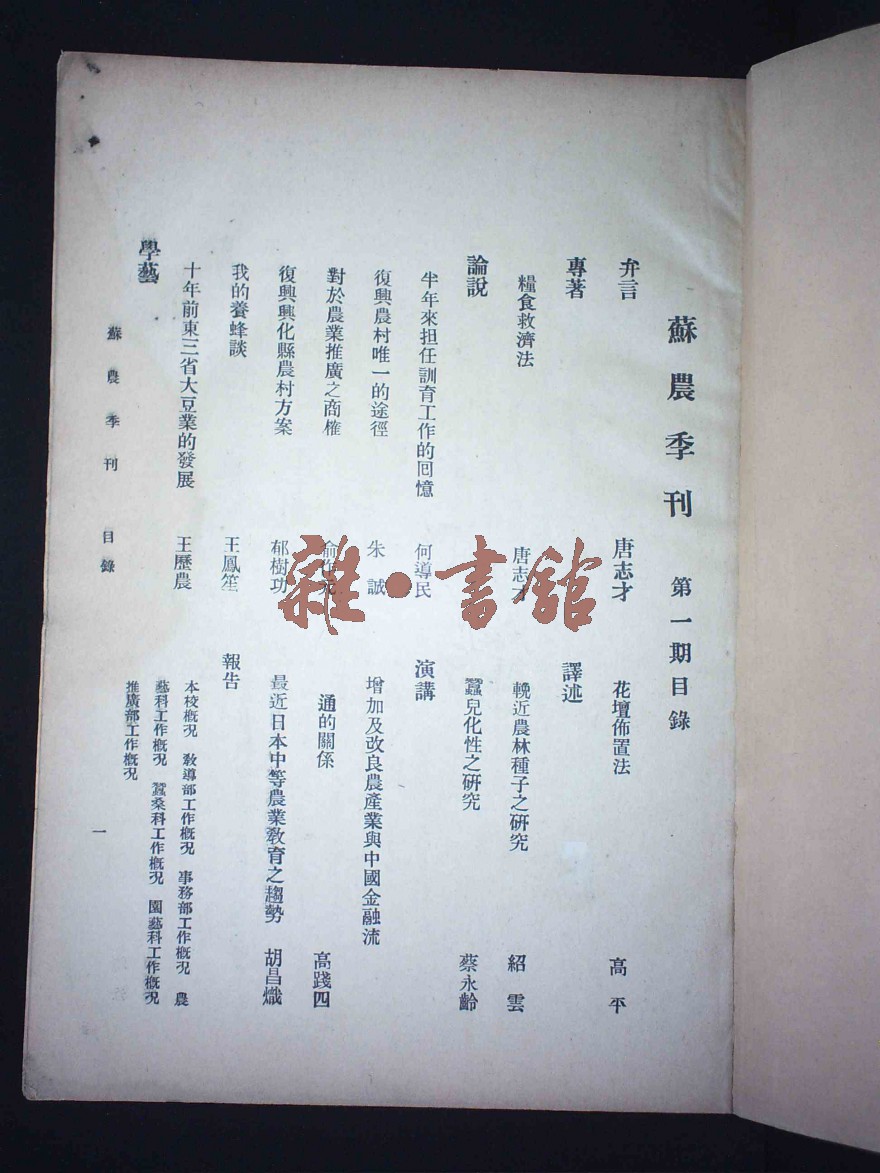 蘇農季刊 第一期目錄
弁言 唐志才
專著
糧食救濟法 唐志才
論說
半年來担任訓育工作的回憶 何導民
復興農村唯一的途徑 朱誠
對於農業推廣之商榷
復興興化縣農村方案 郁樹功
我的養蜂談 王鳳笙
十年前東三省大豆業的發展 王歷農
學藝
花壇佈置法 高平
譯述
輓近農林種子之研究 紹雲
蠶兒化性之研究 蔡永齡
演講
增加及改良農產業與中國金融流
通的關係 高踐四
最近日本中等農業教育之趨勢 胡昌熾
報告
本校概況 教導部工作概況 事務部工作概況 農
藝科工作概況 蠶桑科工作概況 園藝科工作概況
推廣部工作概況
蘇農季刊 目錄
一
雜·書館